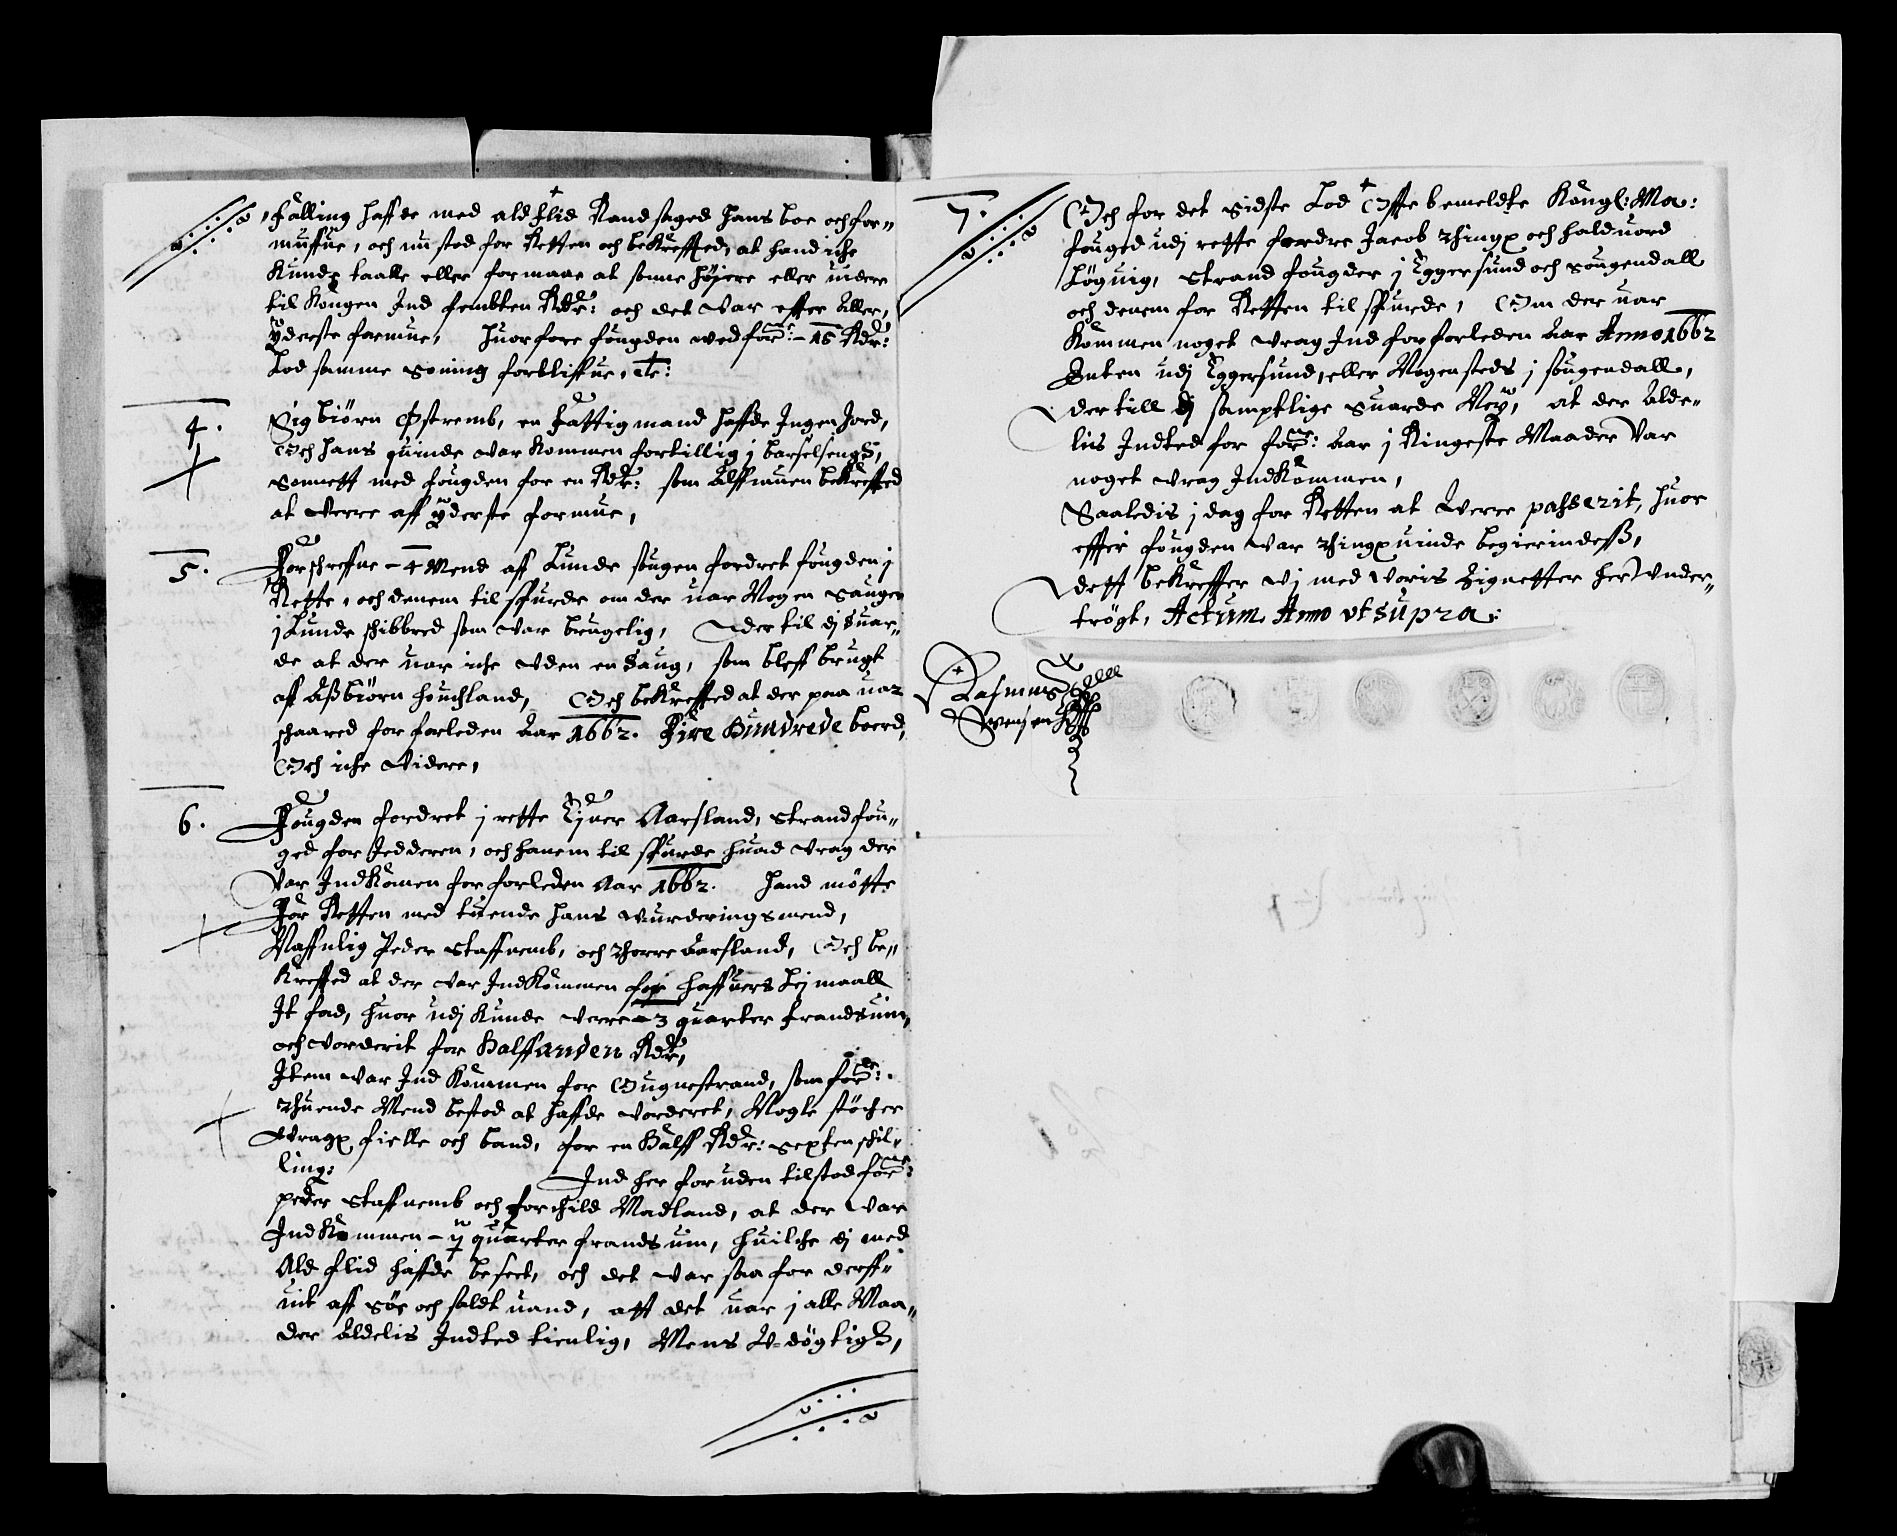 fælling haffde med ald flid Randsaged hans boe och for-
muffue, och nu stod for Retten och bekreffted, at hand iche
kunde taalle eller formaae at sonne høijere eller uidere
til Kongen Ind fembten Rdr: och det var effter aller,
ÿderste formue, Huorfore fougden med for: - 15 Rdr:
Lod samme soning forbliffue, etc:
4. Sigbiørn Østremb, en fattig mand haffde Ingen Jord,
Och hans quinde var kommen fortillig j barselseng,
Sonnett med fougden for en Rdr: som Alffmuen bekreffted
at verre aff ÿderste formue,
5. Forschreffne - 4 Mend aff Lunde sougen fordret fougden j
Rette, och dennem tilspurde om der uar Nogen Sauger
j Lunde schibbred som var brugelig, der til dj suar-
de at der uar iche uden en Saug, som bleff brugt
aff Aßbiørn Houchland, Och bekreffted at der paa uar
schaared for forleden aar 1662. Fire Hundrede boerd,
Och iche Videre,
6. Fougden fordret j rette Ejuer Aarsland, Strandfou-
ged for Jedderen, och hanem tilspurde huad vrag der
var Indkomen for forleden Aar 1662. Hand møtte
For Retten med tuende hans vurderingsmend,
Naffnlig Peder Staffnemb, och Thorre Aarsland, Och be-
kreffted at der var Indkommen for Haffuers Lejmaall
It fad, huor udj kunde verre - 3 quarter frandsuin,
och vorderit for Halffanden Rdr,
Item var Indkommen for Ougnestrand, som for:
Thuende Mend bestod at haffde vorderet, Nogle støcher
Vragx fielle och band, for en Halff Rdr: Sexten schil-
ling: Ind her foruden tilstod for:
peder Staffnemb och Torchild Madland, at der var
Indkommen - quarter frandsuin, huilche dj med
Ald flid haffde beseet, och det var saa forderff-
uit aff Søe och saldt uand, att det uar j alle Maa-
der aldelis Indted tienlig, Mens U-døgtig,
7. Och for det sidste Lod Offtebemeldte Kongl: Ma:
fouged udj rette fordre Jacob Thingx och Halduord
Løguig, Strandfougder j Eggersund och Sougendall
och denem for Retten tilspurde, Om der uar
Kommen noget vrag Ind for forleden Aar Anno 1662
Enten udj Eggersund, eller Nogensteds j Sougendall,
der till dj samptlige Suarde Neÿ, at der alde-
lis Indted for for: Aar j Ringeste Maader var
noget vrag Indkommen,
Saaledis j dag for Retten at Verre passerit, huor
effter fougden var Thingxuinde begierindeß,
dett bekreffter vj med voris Zignetter her under-
trøgt, Actum Anno ut supra:
Rasmus
Svensen